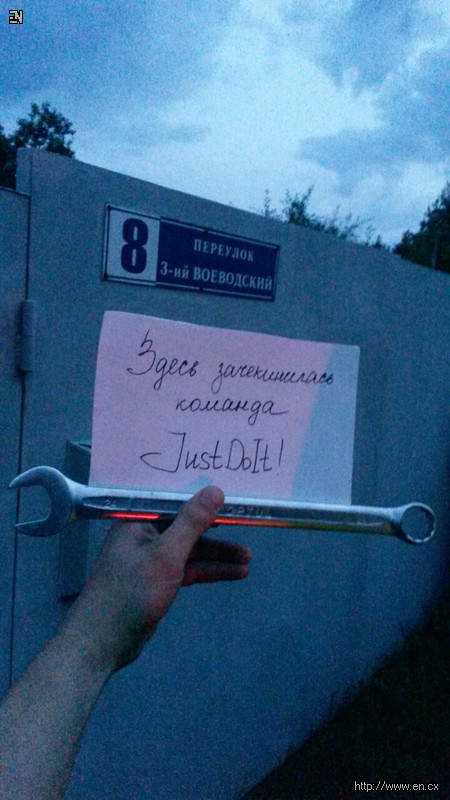 EN
8
ПЕРЕУЛОК
3-ий ВОЕВОДСКИЙ
Здесь зачекинилась
команда
JustDoIt!
24
http://www.en.cx